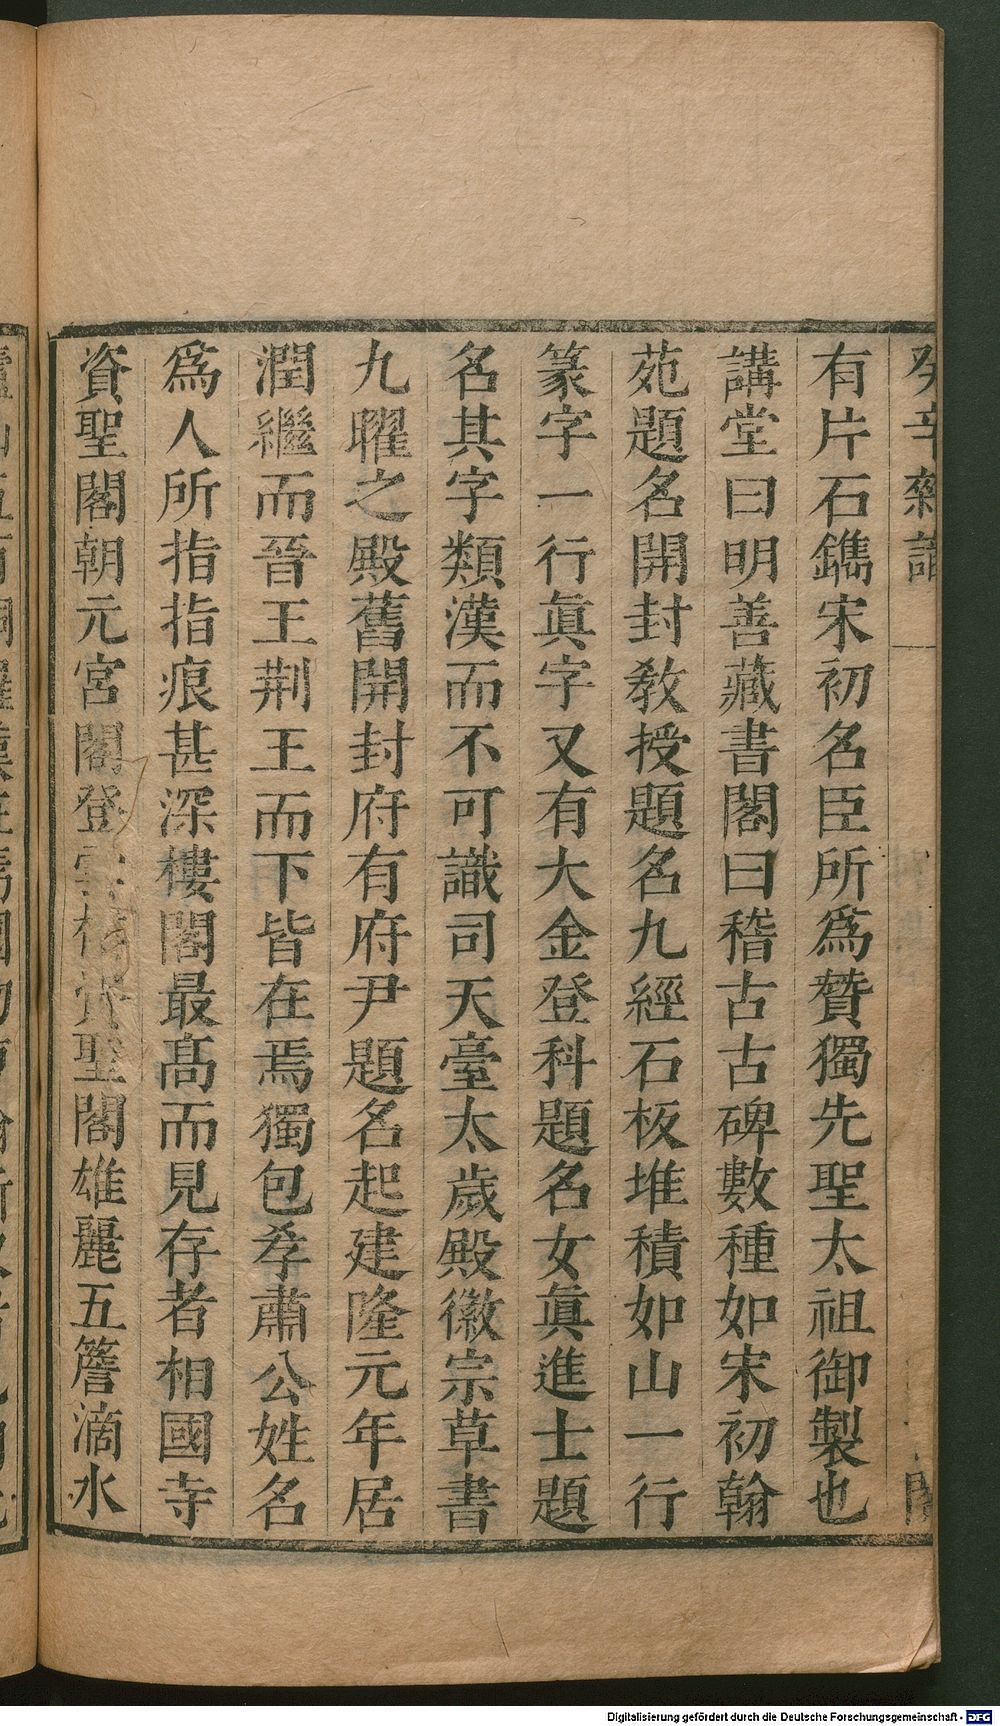 有片石鐫宋初名臣所爲贊獨先聖太祖御製也
講堂曰明善藏書閣曰稽古古碑數種如宋初翰
苑題名開封教授題名九經石板堆積如山一行
篆字一行眞字又有大金登科題名女眞進士題
名其字類漢而不可識司天臺太歲殿徽宗草書
九曜之殿舊開封府有府尹題名起建隆元年居
潤繼而晉王荆王而下皆在焉獨包孝肅公姓名
爲人所指指痕甚深樓閣最高而見存者相國寺
資聖閣朝元宮閣登雲樓資聖閣雄麗五簷滴水
Digitalisierung gefördert durch die Deutsche Forschungsgemeinschaft - DFG